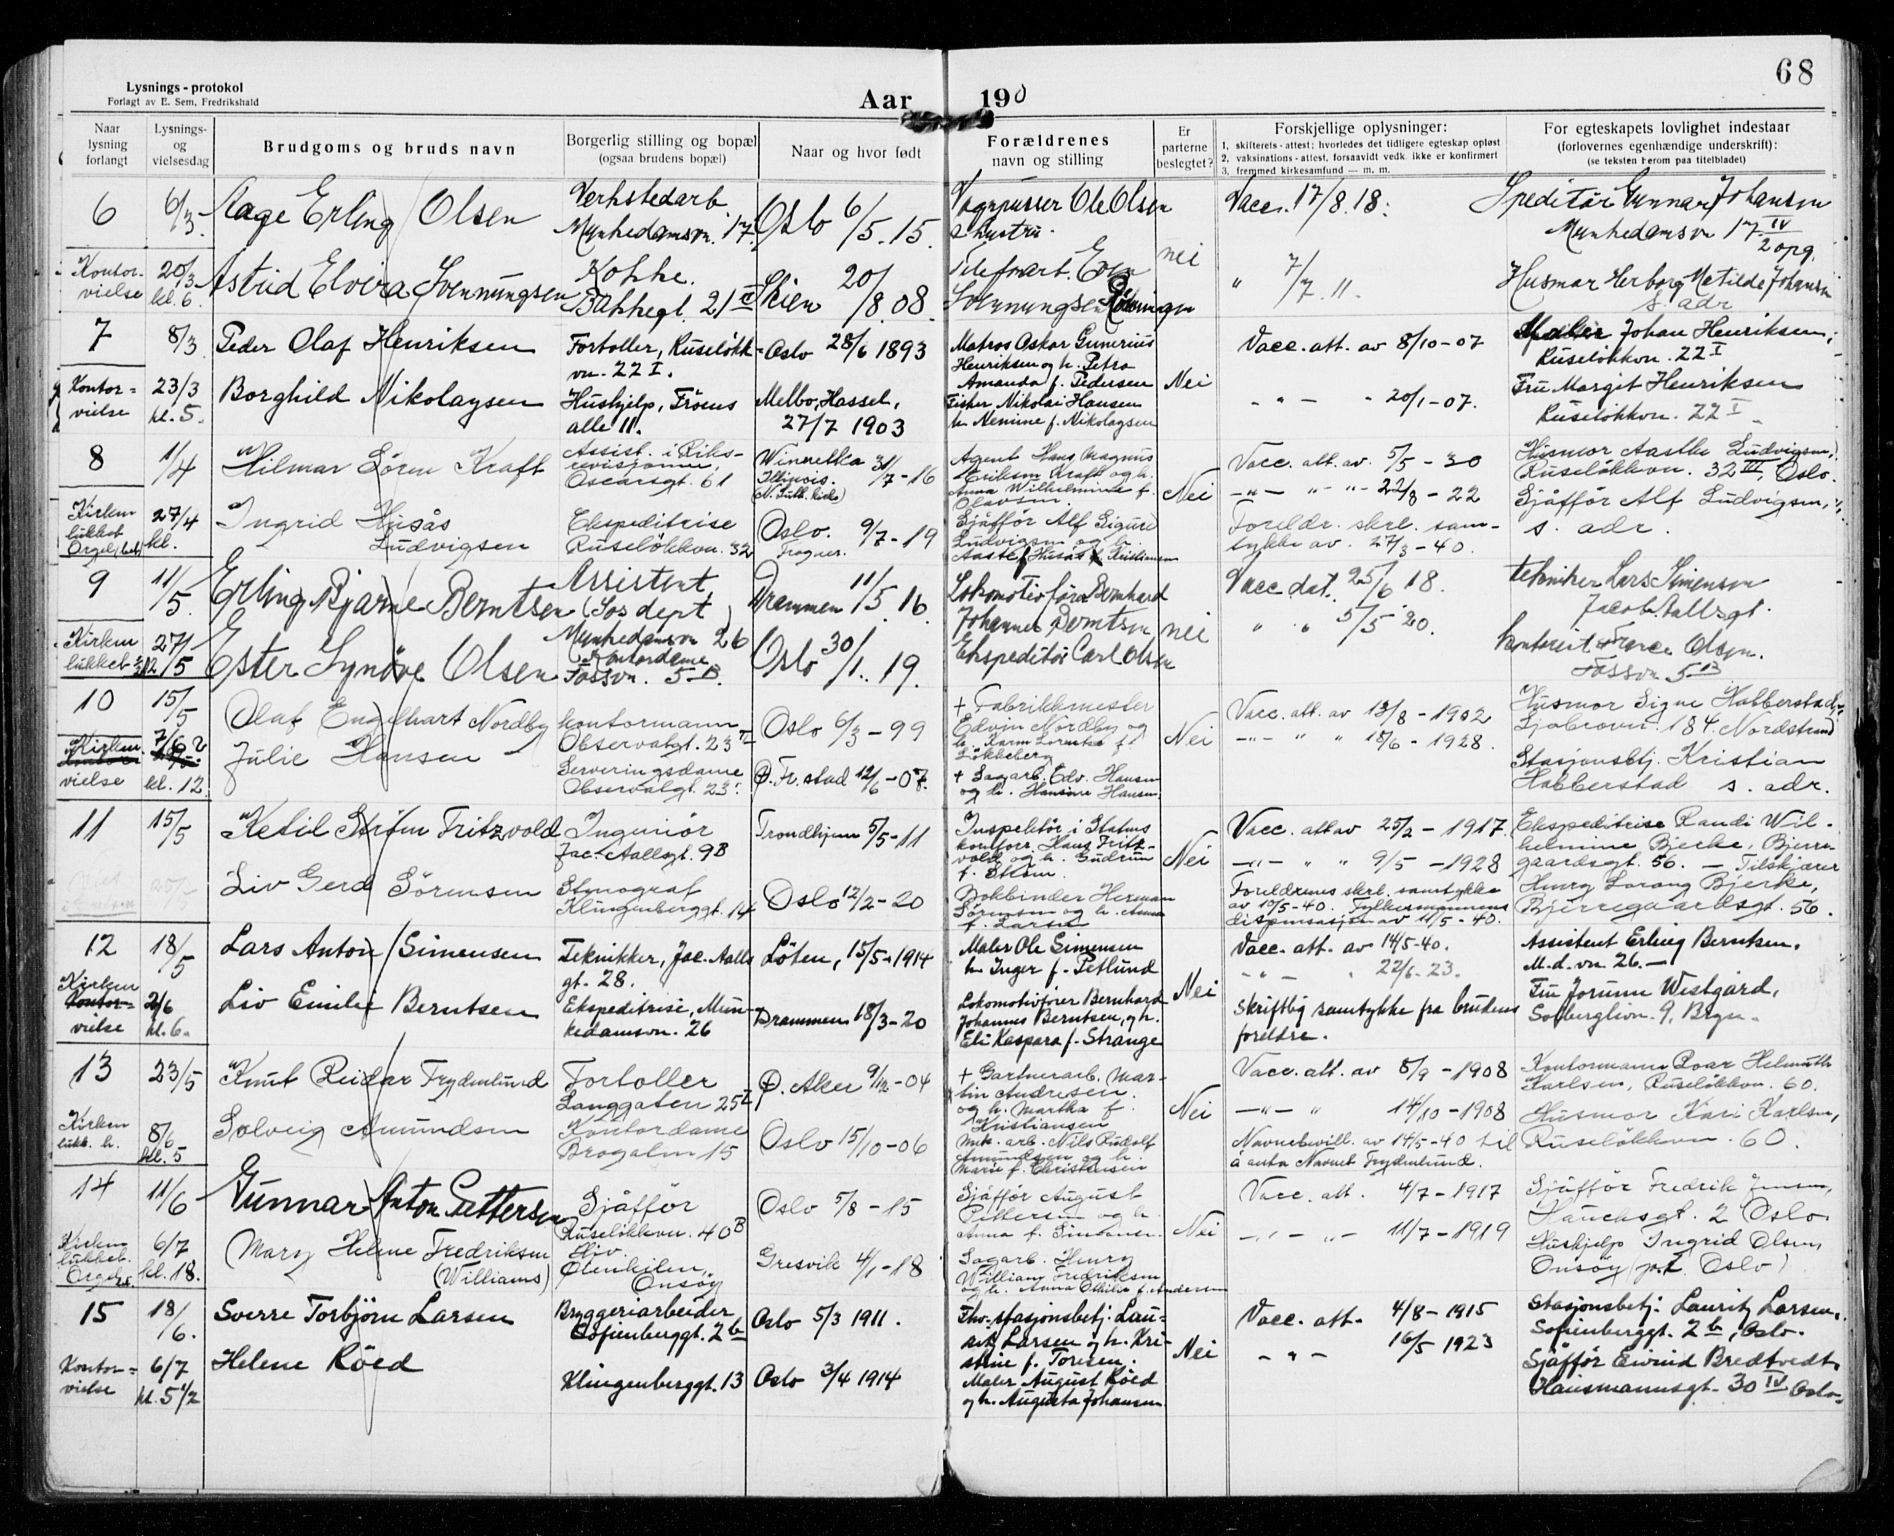 68
Lysnings-protokol
Forlagt av E. Sem, Fredrikshald
Aar 190
Naar lysning forlangt
Lysnings- og vielsesdag
Brudgoms og bruds navn
Borgerlig stilling og bopæl
(ogsaa brudens bopæl)
Naar og hvor født
Forældrenes
navn og stilling
Er parterne beslegtet?
Forskjellige oplysninger:
1, skifterets-attest; hvorledes det tidligere egteskap opløst
2, vaksinations-attest, forsaavidt vedk. ikke er konfirmert
3, fremmed kirkesamfund — m. m.
For egteskapets lovlighet indestaar
(forlovernes egenhændige underskrift):
(se teksten herom paa titelbladet)
6
6/3
Aage Erling Olsen
Verkstedarb
Munkedamsvn. 17.
Oslo 6/5. 15.
Vognpusser Ole Olsen
& hustru.
nei
Vacc. 17/8. 18.
Speditør Gunnar Johansen
Munkedamsvn 17 IV
2 opg.
Kontor-
vielse
20/3
kl. 6.
Astrid Elvira Svenningsen
Kokke.
Bakkegt. 21 c
Skien 20/8. 08.
Telefonarb. Even
" 7/7. 11.
Husmor Herborg Matilde Johansen
s. adr
7
8/3
Peder Olaf Henriksen
Fortoller, Ruseløkk-
vn. 22 I.
Oslo 28/6 1893
Matros Oskar Gunerius
Henriksen og h. Petra
Amanda f. Pedersen
Nei
Vacc. att. av 8/10-07
Maler Johan Henriksen,
Ruseløkkvn. 22 I
Kontor-
vielse
23/3
kl. 5.
Borghild Nikolaysen
Hushjelp, Frøens
alle 11.
Melbo, Hassel,
27/7 1903
Fisker Nikolai Hansen
h. Nemine f. Nikolaysen
- " - " 20/1-07.
Fru Margit Henriksen
Ruseløkkvn. 22 I
8
1/4
Hilmar Søren Kraft
Assist. i Riks-
revisjonen,
Oscarsgt. 61
Winnetka 31/7-16
Illinois.
(N. Luth. kirke)
Agent Hans Magnus
Eriksen Kraft og h.
Anna Wilhelmine f.
Olavsen
Nei
Vacc. att. av. 5/5-30
Husmor Aasthe Ludvigsen,
Ruseløkkvn. 32 III, Oslo.
Kirken
lukket
Orgel,
27/4
kl.
Ingrid Husås
Ludvigsen
Ekspeditrise
Ruseløkkvn. 32
Oslo. 9/7-19
Frogner.
Sjåffør Alf Sigurd
Ludvigsen og h.
Aaste f. Husås Kristiansen
-"- " -"- 22/8-22
Foreldr. skrl. sam-
tykke av. 27/3-40.
Sjåffør Alf Ludvigsen,
s. adr.
9
11/5
Erling Bjarne Berntsen
Assistent
(Sos dept)
Munkedamsvn 26
Drammen 11/5. 16.
Lokomotivfører Bernhard
Johannes Berntsen
nei
Vacc. dat. 25/6 18.
Tekniker Lars Simensen
Jacob Aallsgt.
Kirken
lukket
27/5
Ester Synøve Olsen
Kontordame
Fossvn. 5 B.
Oslo 30/1. 19.
Ekspeditør Carl Olsen
" " 5/5 20.
Kontorist Olsen.
Fossvn 5 B
10
15/5
Olaf Engelhart Nordby
kontormann
Observatgt. 23 II
Oslo 6/3-99
+ Fabrikkmester
Edvin Nordby og
h. Karen Lorentse f.
Løkkeberg
Nei
Vacc. att. av 13/8-1902
Husmor Signe Habberstad,
Ljabrovn. 184. Nordstrand
Kirken.
vielse
7/6
kl. 12.
Julie Hansen
Serveringsdame
Observatgt. 23 I.
Ø. Fr.stad 12/6-07.
+ Sagarb. Edv. Hansen
og h. Hansine Hansen.
-"- " " 15/6-1928.
Stasjonsbtj. Kristian
Habberstad s. adr.
11
15/5
Ketil Strøm Fritzvold
Ingeniør
Jac. Aallsgt. 9B
Trondhjem 5/5-11
Inspektør i Statens
kornforr. Hans Fritz-
vold og h. Gudrun
f. Strøm.
Nei
Vacc. att av 25/2-1917.
Ekspeditrise Randi Wil-
helmine Bjerke, Bjerre-
gaardsgt. 56. — Tilskjærer
25/5
Liv Gerd Sørensen
Stenograf
Klingenberggt. 14
Oslo 12/2-20
Bokbinder Herman
Sørensen og h. Anna
f. Larsen
-"- " " 9/5-1928
Foreldrenes skrl. samtykke
av 10/5-40. Fylkesmannens
dispensasjon av 11/5-40.
Henry Lorang Bjerke,
Bjerregaardsgt. 56.
12
18/5
Lars Anton Simensen
Teknikker, Jac. Aalls
gt. 28.
Løten, 15/5-1914
Maler Ole Simensen
h. Inger f. Petlund
Nei
Vacc. att. av 14/5-40.
Assistent Erling Berntsen.
M.d. vn. 26. —
Kirken
Kontor-
vielse
2/6
kl. 6.
Liv Emilie Berntsen
Ekspeditrise, Mun-
kedamsvn. 26
Drammen 18/3-20
Lokomotivfører Bernhard
Johannes Berntsen, og h.
Eli Kaspara f. Strange
- " - " 22/6-23.
Skriftlig samtykke fra brudens
foreldre.
Fru Jorunn Westgård,
Solberglivn. 9, Bryn.
13
23/5
Knut Reidar Frydenlund
Fortoller
Langgaten 25 I
Ø. Aker 9/12-04
+ Gartnerarb. Mar-
tin Andresen.
og h. Martha f.
Kristiansen
Nei
Vacc. att. av 8/9-1908
Kontormann Roar Helmuth
Karlsen, Ruseløkkvn. 60.
Kirken
lukk. h.
8/6
kl. 5
Solveig Amundsen
Kontordame
Brogatn 15
Oslo 15/10-06
Mek. arb. Nils Rudolf
Amundsen og h.
Marie f. Christensen
-"- " 14/10-1908
Navnebevill. av 14/5-40 til
å anta Navnet Frydenlund.
Husmor Kari Karlsen,
Ruseløkkvn. 60.
14
11/6
Gunnar Anton Pettersen
Sjåffør
Ruseløkkvn. 40 B
Oslo 5/8-15
Sjåffør August
Pettersen og h.
Anna f. Simonsen.
Nei
Vacc. att. 4/7-1917
Sjåffør Fredrik Jensen,
Hauchsgt. 2 Oslo.
Kirken
lukket.
Orgel
6/7
kl. 18.
Mary Helene Fredriksen
(Williams)
Elvenheien,
Onsøy
Gresvik 4/1-18
Sagarb. Henry
William Fredriksen
og h. Anna Othilie f. Andersen
-"- -"- 11/7-1919
Hushjelp Ingrid Olsen,
Onsøy (p.t. Oslo)
15
18/6.
Sverre Torbjørn Larsen
Bryggeriarbeider
Sofienberggt. 2 b
Oslo 5/3 1911.
Fhv. stasjonsbetj. Lau-
ritz Larsen og h. Kri-
stine f. Toresen.
Nei
Vacc. att. 4/8-1915
Stasjonsbetj. Lauritz Larsen.
Sofienberggt. 2 b, Oslo.
Kontor-
vielse
6/7
kl. 5 1/2
Helene Röed
Klingenberggt. 13
Oslo 3/4 1914
Maler August Röed
og h. Augusta Johansen
- " - 16/5 1923
Sjåffør Eivind Bredtvedt,
Hausmannsgt. 30 IV Oslo.